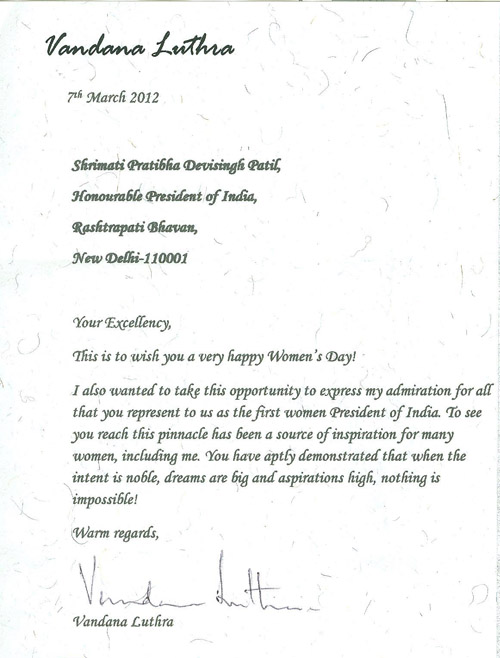 Vandana Luthra
7th March 2012
Shrimati Pratibha Devisingh Patil,
Honourable President of India,
Rashtrapati Bhavan,
New Delhi-110001
Your Excellency,
This is to wish you a very happy Women's Day!
I also wanted to take this opportunity to express my admiration for all
that you represent to us as the first women President of India. To see
you reach this pinnacle has been a source of inspiration for many
women, including me. You have aptly demonstrated that when the
intent is noble, dreams are big and aspirations high, nothing is
impossible!
Warm regards,
Vandana Luthra
Vandana Luthra